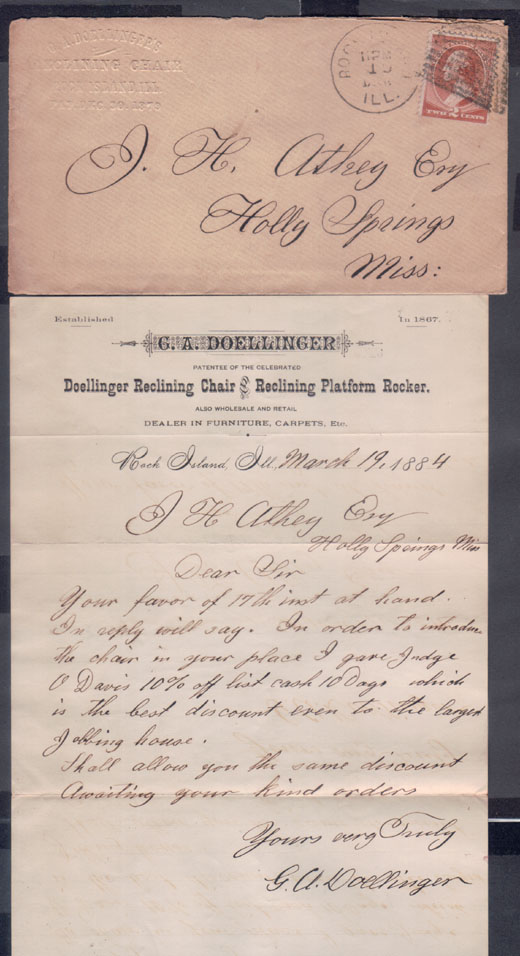 G. A. DOELLINGER'S
RECLINING CHAIR
ROCK ISLAND ILL.
PAT. DEC. 10. 1878
ILL.
TWO 2 CENTS
J. H. Athey Esq
Holly Springs
Miss:
Established In 1867.
G. A. DOELLINGER
PATENTEE OF THE CELEBRATED
Doellinger Reclining Chair & Reclining Platform Rocker.
ALSO WHOLESALE AND RETAIL
DEALER IN FURNITURE, CARPETS, Etc.
Rock Island, Ill., March 19, 1884
J H Athey Esq
Holly Springs Miss
Dear Sir
Your favor of 17th inst at hand.
In reply will say. In order to introduce
the chair in your place I gave Judge
O Davis 10% off list cash 10 Days which
is the best discount even to the largest
Jobbing house.
Shall allow you the same discount
Awaiting your kind orders
Yours very Truly
G. A. Doellinger